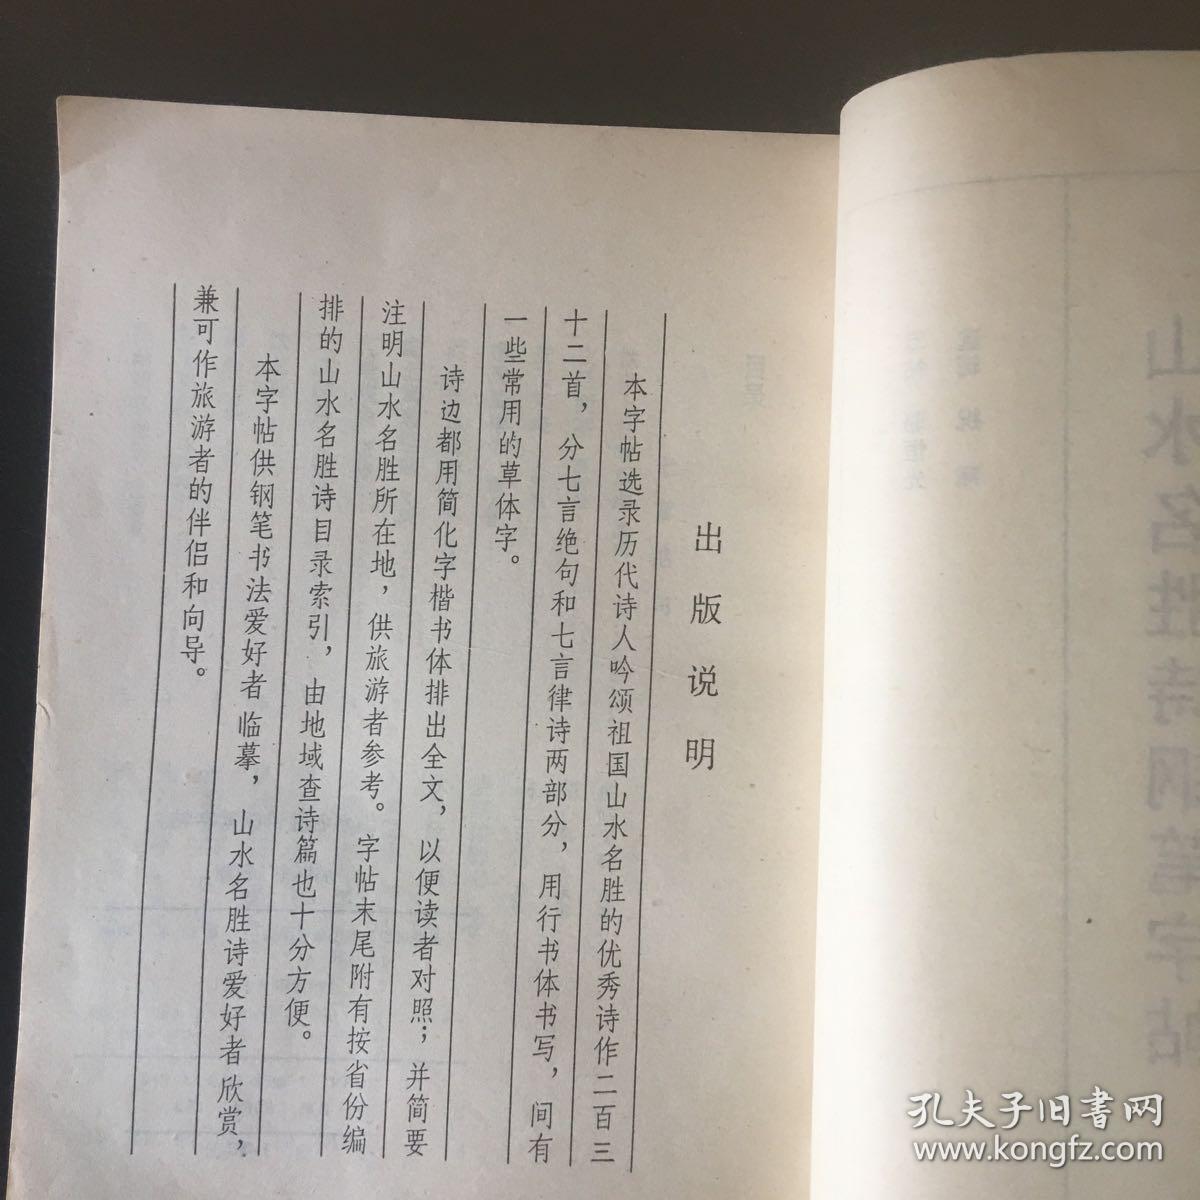 出版说明
本字帖选录历代诗人吟颂祖国山水名胜的优秀诗作二百三
十二首，分七言绝句和七言律诗两部分，用行书体书写，间有
一些常用的草体字。
诗边都用简化字楷书体排出全文，以便读者对照；并简要
注明山水名胜所在地，供旅游者参考。字帖末尾附有按省份编
排的山水名胜诗目录索引，由地域查诗篇也十分方便。
本字帖供钢笔书法爱好者临摹，山水名胜诗爱好者欣赏，
兼可作旅游者的伴侣和向导。
山水名胜诗钢笔字帖
目录
孔夫子旧书网
www.kongfz.com